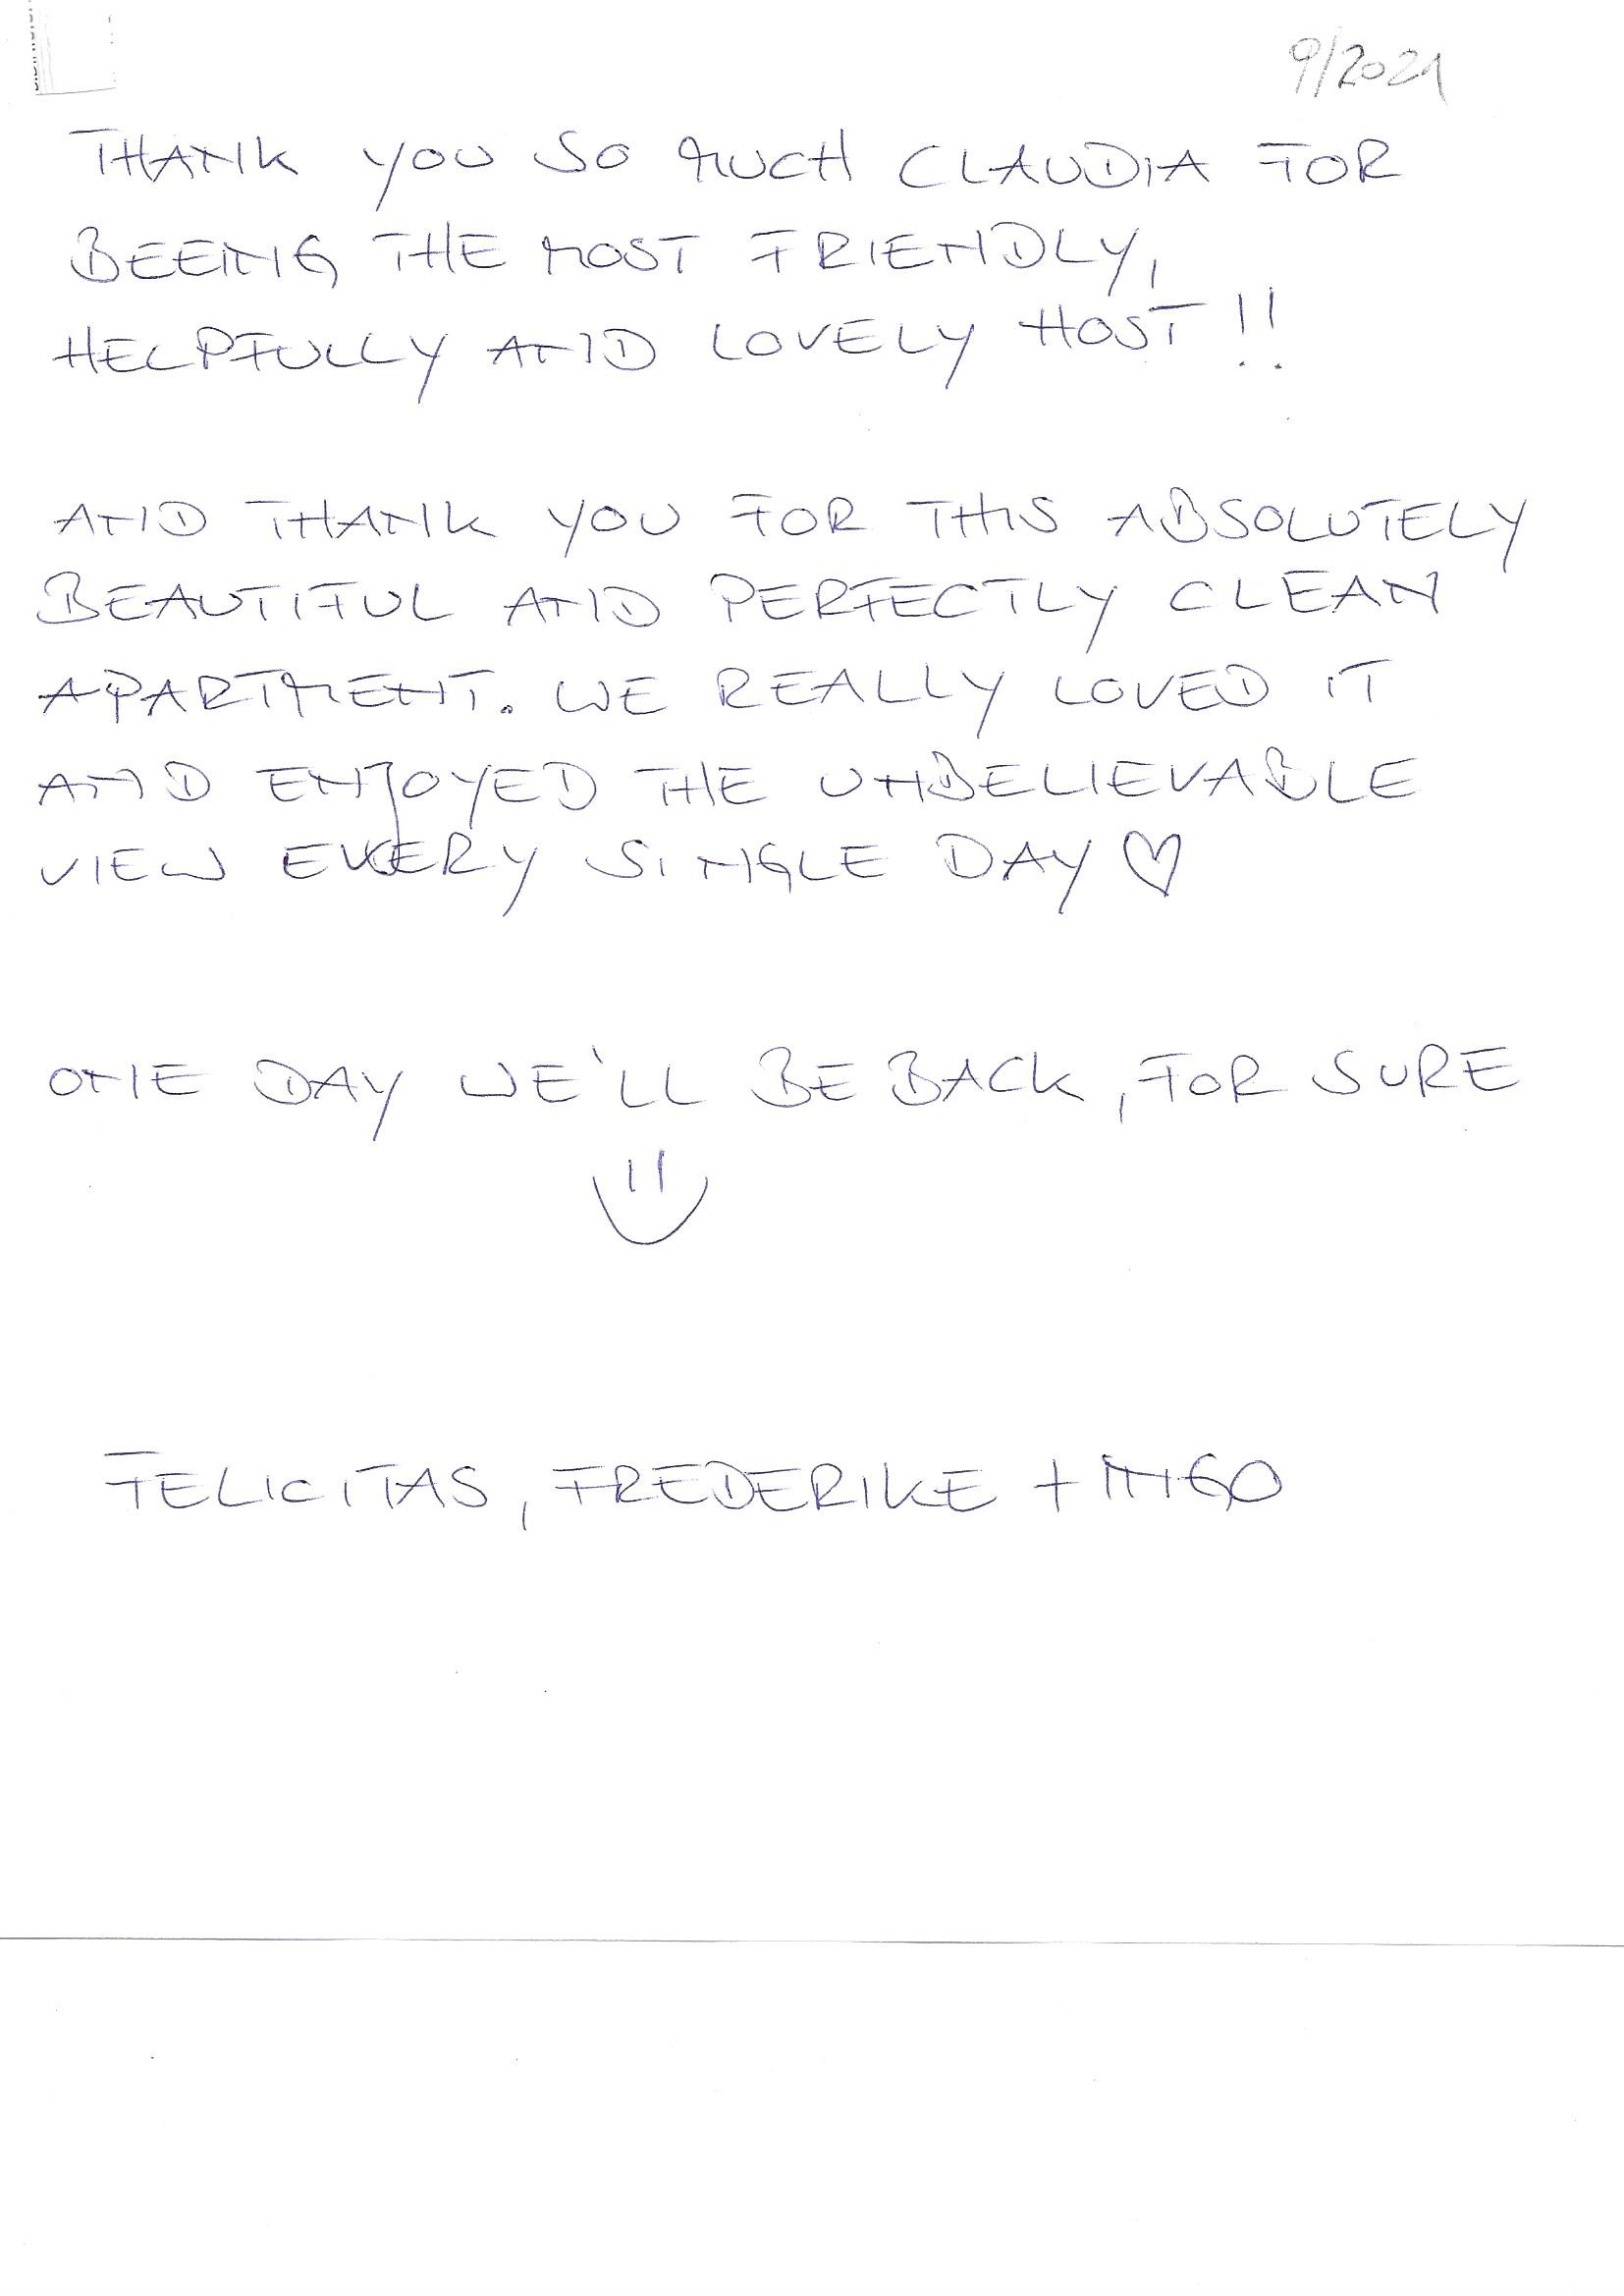 9/2021
THANK YOU SO MUCH CLAUDIA FOR
BEEING THE MOST FRIENDLY,
HELPFULLY AND LOVELY HOST!!
AND THANK YOU FOR THIS ABSOLUTELY
BEAUTIFUL AND PERFECTLY CLEAN
APARTMENT. WE REALLY LOVED IT
AND ENJOYED THE UNBELIEVABLE
VIEW EVERY SINGLE DAY ♡
ONE DAY WE'LL BE BACK, FOR SURE
FELICITAS, FREDERIKE + INGO